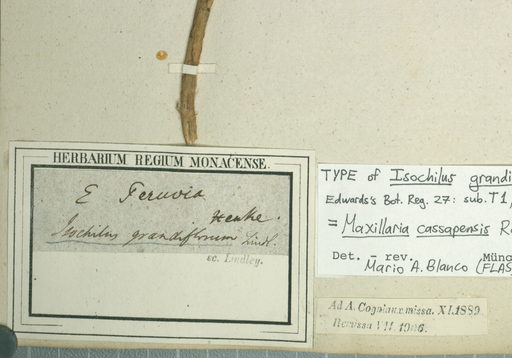 HERBARIUM REGIUM MONACENSE.
E Peruvia
Henke.
Isochilus grandiflorum Lindl.
sc. Lindley.
TYPE of Isochilus grandi
Edwards's Bot. Reg. 27: sub. T 1,
= Maxillaria cassapensis R
Det. – rev. Mün
Mario A. Blanco (FLAS
Ad A. Cogniaux missa. XI.1889
Reversa VII.1906.